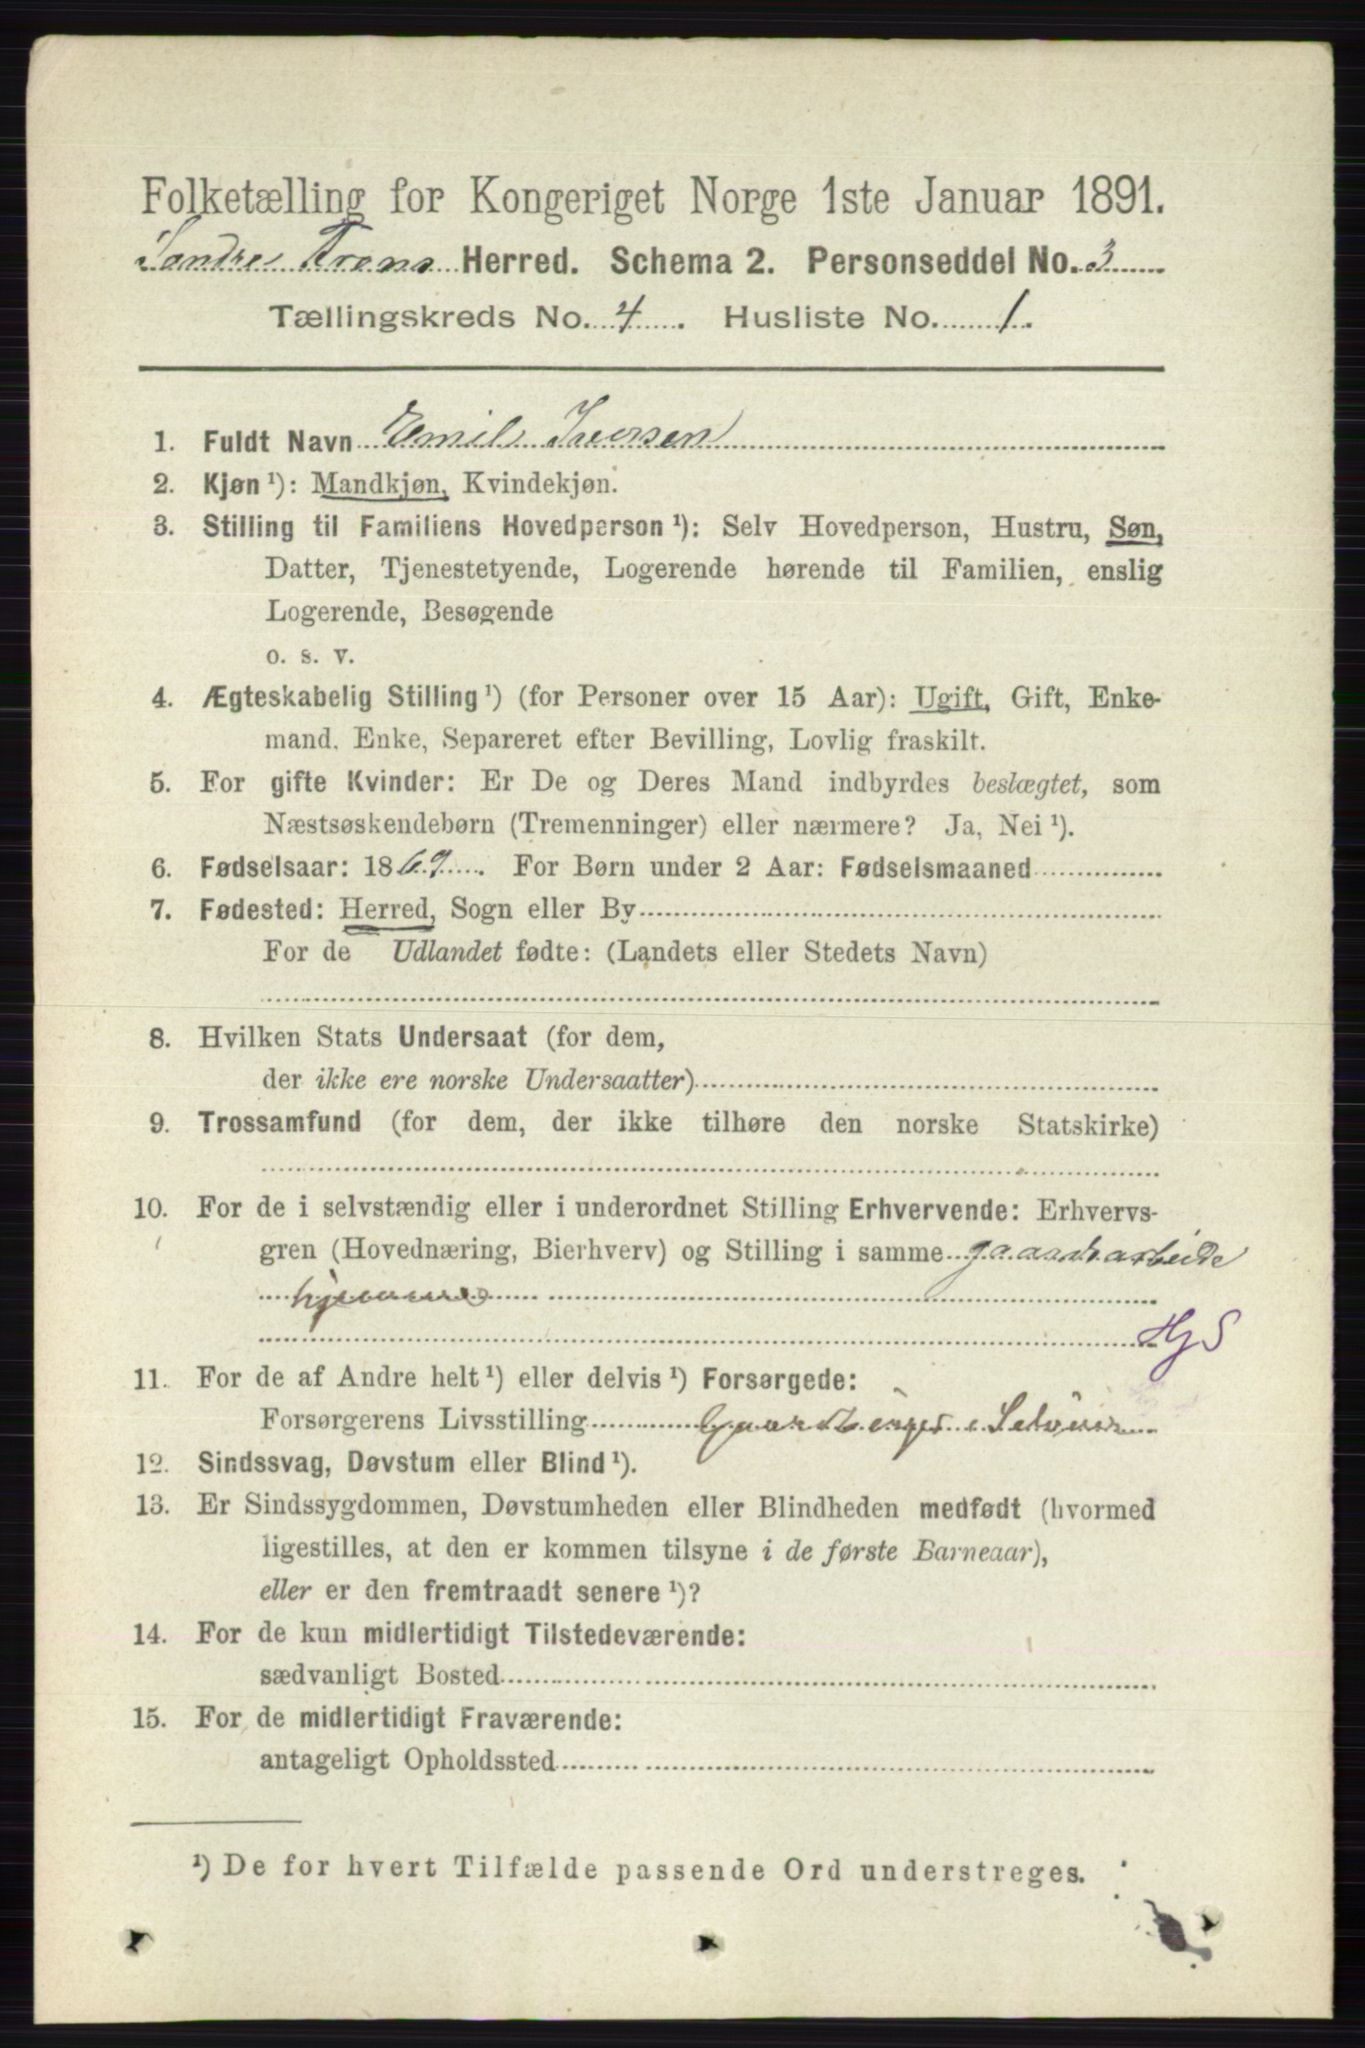 Folketælling for Kongeriget Norge 1ste Januar 1891.
Søndre Trøns Herred. Schema 2. Personseddel No. 3
Tællingskreds No. 4. Husliste No. 1.
1. Fuldt Navn Emil Iversen
2. Kjøn ¹): Mandkjøn, Kvindekjøn.
3. Stilling til Familiens Hovedperson ¹): Selv Hovedperson, Hustru, Søn,
Datter, Tjenestetyende, Logerende hørende til Familien, enslig
Logerende, Besøgende
o. s. v.
4. Ægteskabelig Stilling ¹) (for Personer over 15 Aar): Ugift, Gift, Enke-
mand, Enke, Separeret efter Bevilling, Lovlig fraskilt.
5. For gifte Kvinder: Er De og Deres Mand indbyrdes beslægtet, som
Næstsøskendebørn (Tremenninger) eller nærmere? Ja, Nei ¹).
6. Fødselsaar: 1869. For Børn under 2 Aar: Fødselsmaaned
7. Fødested: Herred, Sogn eller By
For de Udlandet fødte: (Landets eller Stedets Navn)
8. Hvilken Stats Undersaat (for dem,
der ikke ere norske Undersaatter)
9. Trossamfund (for dem, der ikke tilhøre den norske Statskirke)
10. For de i selvstændig eller i underordnet Stilling Erhvervende: Erhvervs-
gren (Hovednæring, Bierhverv) og Stilling i samme gaardsarbeide
hjemme
HjS
11. For de af Andre helt ¹) eller delvis ¹) Forsørgede:
Forsørgerens Livsstilling Gaardbruger Selveier
12. Sindssvag, Døvstum eller Blind ¹).
13. Er Sindssygdommen, Døvstumheden eller Blindheden medfødt (hvormed
ligestilles, at den er kommen tilsyne i de første Barneaar),
eller er den fremtraadt senere ¹)?
14. For de kun midlertidigt Tilstedeværende:
sædvanligt Bosted
15. For de midlertidigt Fraværende:
antageligt Opholdssted
¹) De for hvert Tilfælde passende Ord understreges.